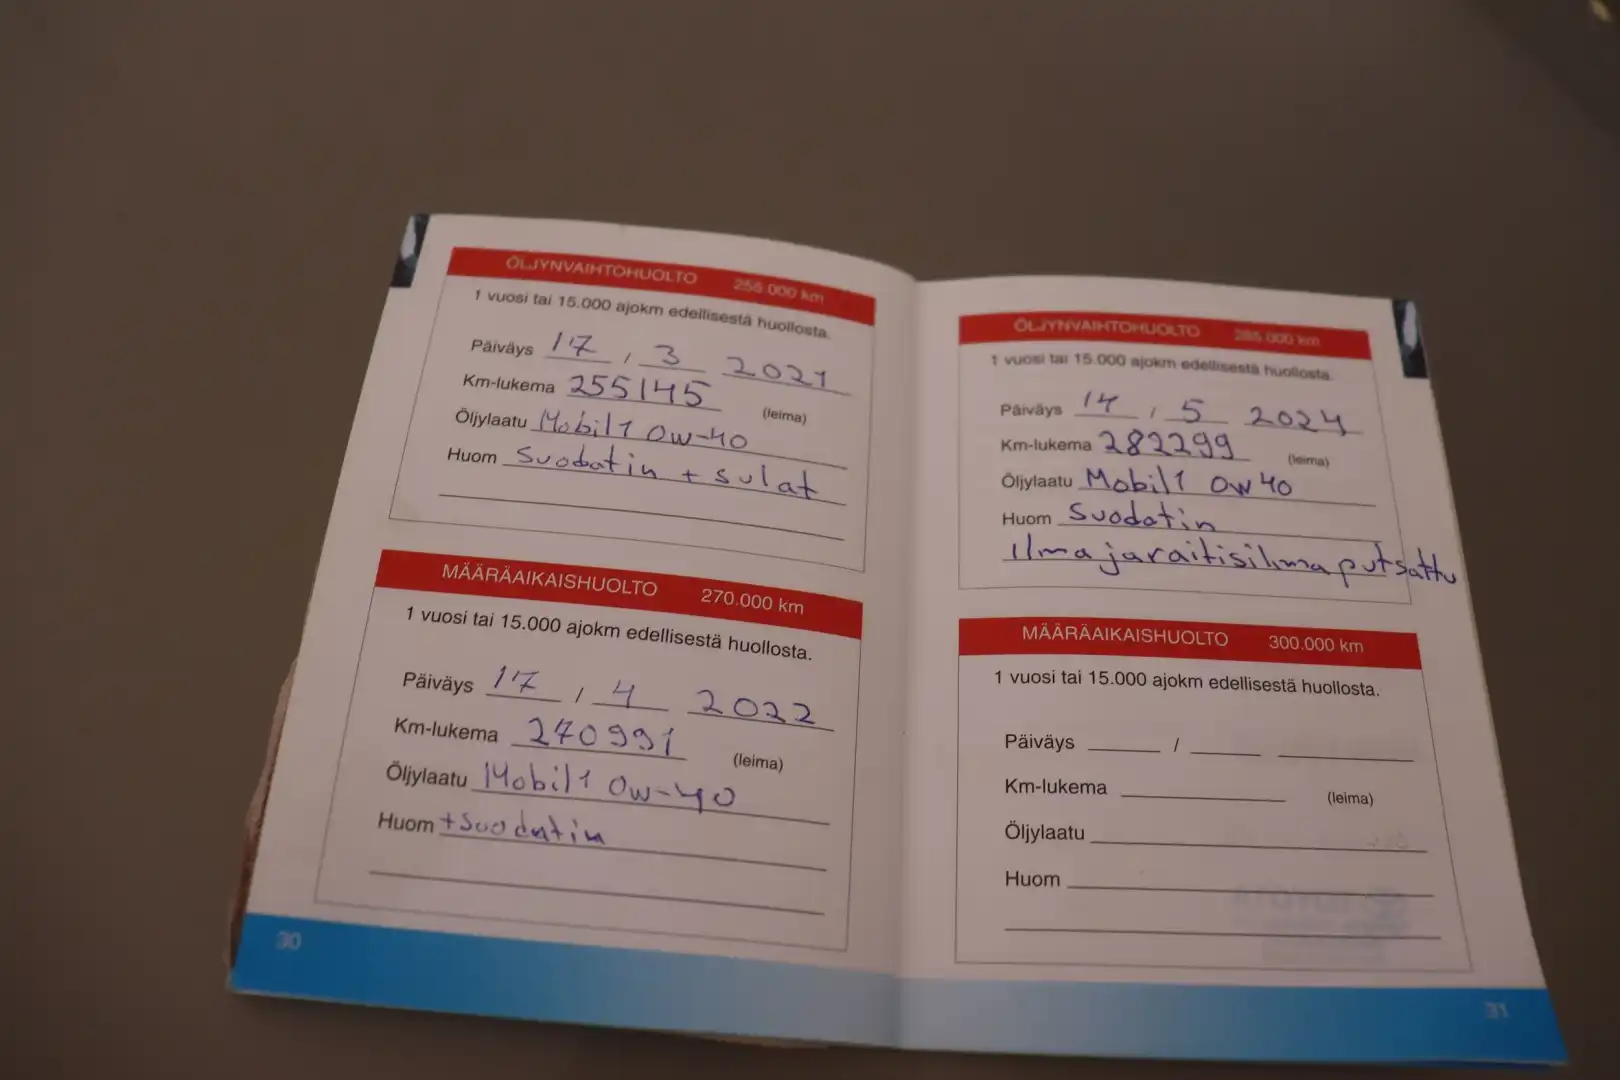 ÖLJYNVAIHTOHUOLTO 255 000 km
1 vuosi tai 15.000 ajokm edellisestä huollosta.
Päiväys 17 / 3 2021
Km-lukema 255145
(leima)
Öljylaatu Mobil 1 0w-40
Huom Suodatin + sulat
MÄÄRÄAIKAISHUOLTO 270.000 km
1 vuosi tai 15.000 ajokm edellisestä huollosta.
Päiväys 17 / 4 2022
Km-lukema 270991
(leima)
Öljylaatu Mobil 1 0w-40
Huom +Suodatin
30
ÖLJYNVAIHTOHUOLTO 285.000 km
1 vuosi tai 15.000 ajokm edellisestä huollosta.
Päiväys 14 / 5 2024
Km-lukema 282299
(leima)
Öljylaatu Mobil 1 0w40
Huom Suodatin
Ilma ja raitisilma putsattu
MÄÄRÄAIKAISHUOLTO 300.000 km
1 vuosi tai 15.000 ajokm edellisestä huollosta.
Päiväys /
Km-lukema
(leima)
Öljylaatu
Huom
31